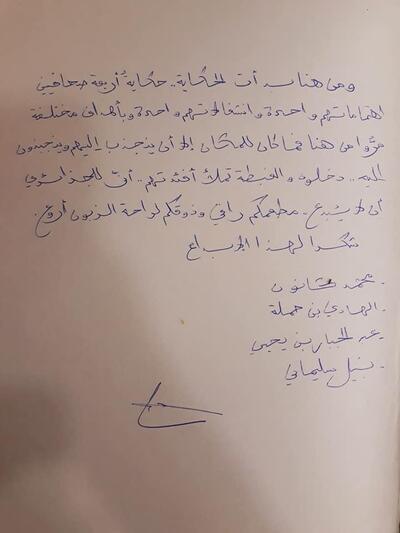 ومن هنا بدأت الحكاية.. حكاية أربعة صحافيين
اهتماماتهم واحدة وانشغالاتهم واحدة وبأهداف مختلفة
مرّوا من هنا فما كان للمكان إلا أن ينجذب إليهم وينجذبون
إليه.. دخلوه والغبطة تملك أفئدتهم.. أنّى للجزائري
أن لا يُبدع. مطعمكم راقي وذوقكم لراحة الزبون أروع.
شكرا لهذا الإبداع
- محمد
- الهادي بن حملة
- عبد الجبار بن يحيى
- نبيل سليماني